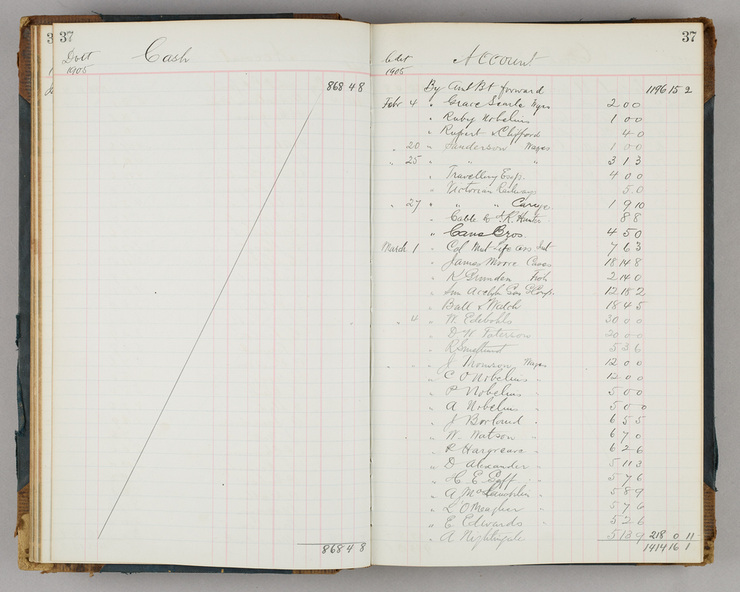 37
Cash
1905
868 4 8
868 4 8
37
Account
1905
By Amt Bt forward 1196 15 2
Febr 4 " Grace Searle Exps 2 0 0
" Ruby Nobelius 1 0 0
" Rupert & Clifford 4 0
" 20 " Sanderson Wages 1 0 0
" 25 " " " 3 1 3
" Travelling Exp. 4 0 0
" Victorian Railways 5 0
" 27 " " " Carge 1 9 10
" Cable to 8 8
" Bros. 4 5 0
March 1 " Col Mut Life Ass 7 6 3
" James Moore Cases 18 14 8
" 2 14 0
" 12 18 2
" Ball & Welch 18 4 5
" 4 " W. 30 0 0
" 20 0 0
" 5 3 6
" J Thomson Wages 12 0 0
" C O Nobelius " 12 0 0
" P Nobelius " 5 0 0
" A Nobelius " 5 0 0
" J " 6 5 5
" W. Watson " 6 7 0
" R Hargreave " 6 2 6
" D Alexander " 5 11 3
" C. E. 5 7 6
" A McLauchlin " 5 8 9
" L O'Meagher " 5 7 6
" E Edwards " 5 2 6
" A Nightingale 5 13 9 218 0 11
1414 16 1